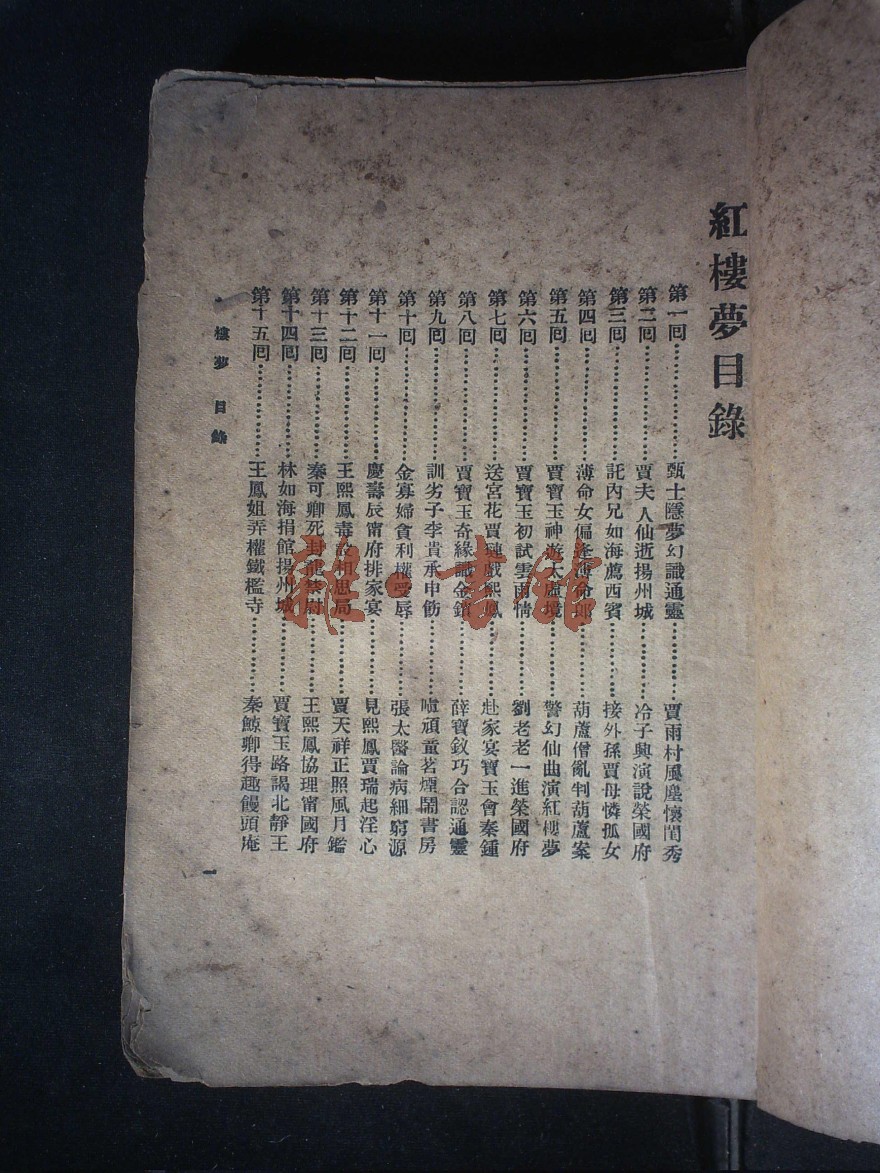 紅樓夢目錄
第一回…………甄士隱夢幻識通靈…………賈雨村風塵懷閨秀
第二回…………賈夫人仙逝揚州城…………冷子興演說榮國府
第三回…………託內兄如海薦西賓…………接外孫賈母憐孤女
第四回…………薄命女偏逢薄命郎…………葫蘆僧亂判葫蘆案
第五回…………賈寶玉神遊太虛境…………警幻仙曲演紅樓夢
第六回…………賈寶玉初試雲雨情…………劉老老一進榮國府
第七回…………送宮花賈璉戲熙鳳…………赴家宴寶玉會秦鍾
第八回…………賈寶玉奇緣識金鎖…………薛寶釵巧合認通靈
第九回…………訓劣子李貴承申飭…………嗔頑童茗煙鬧書房
第十回…………金寡婦貪利權受辱…………張太醫論病細窮源
第十一回…………慶壽辰甯府排家宴…………見熙鳳賈瑞起淫心
第十二回…………王熙鳳毒設相思局…………賈天祥正照風月鑑
第十三回…………秦可卿死封龍禁尉…………王熙鳳協理甯國府
第十四回…………林如海捐館揚州城…………賈寶玉路謁北靜王
第十五回…………王鳳姐弄權鐵檻寺…………秦鯨卿得趣饅頭庵
樓夢 目錄
一
雜·書館